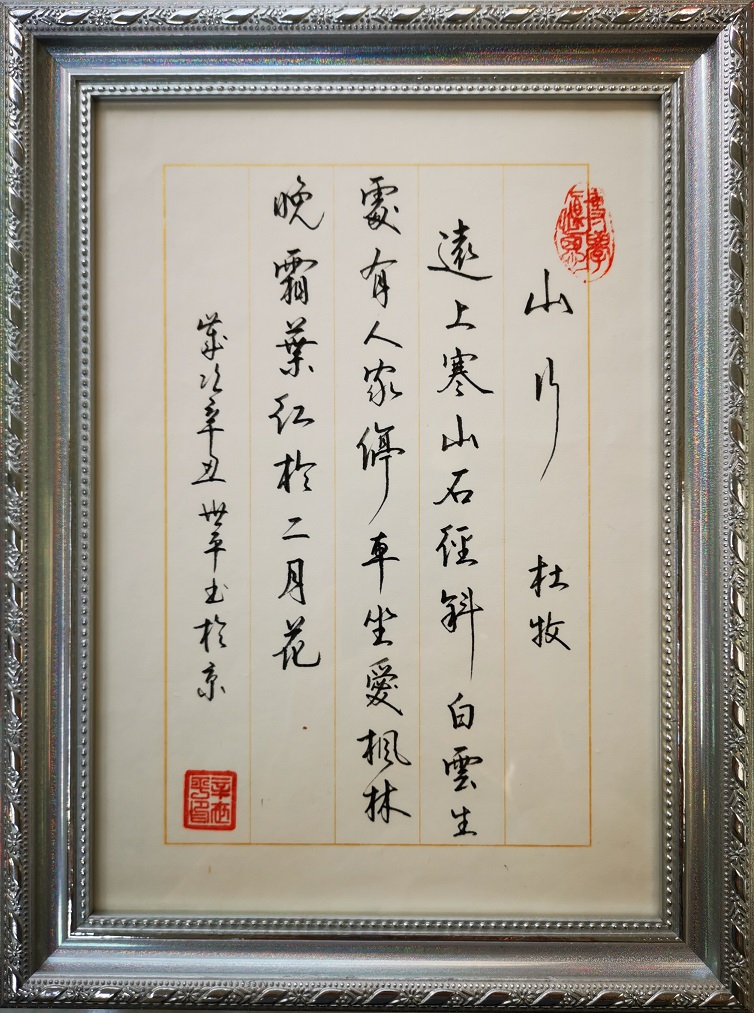 博學慎思
山行 杜牧
遠上寒山石徑斜白雲生
處有人家停車坐愛楓林
晚霜葉紅於二月花
歲次辛丑世平书於京